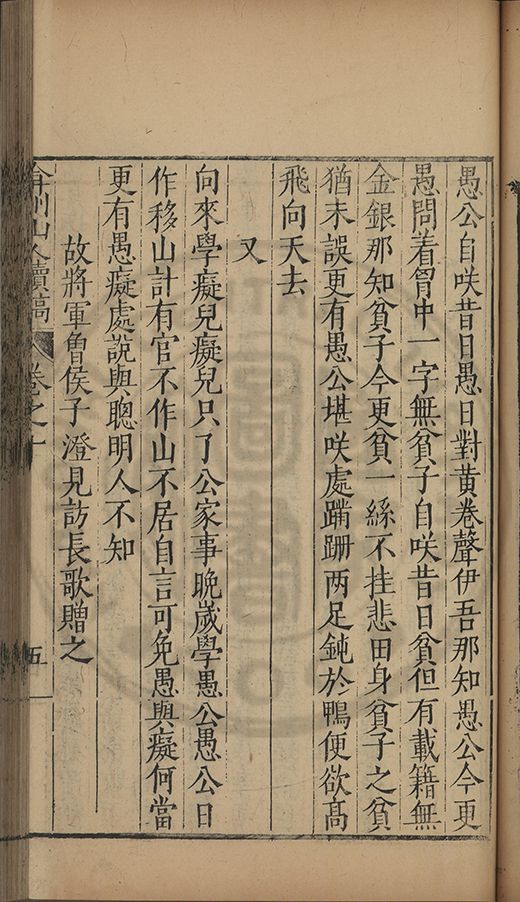 愚公自咲昔日愚日對黃卷聲伊吾那知愚公今更
愚問着胷中一字無貧子自咲昔日貧但有載籍無
金銀那知貧子今更貧一絲不挂悲田身貧子之貧
猶未誤更有愚公堪咲處蹣跚两足鈍於鴨便欲髙
飛向天去
又
向來學癡兒癡兒只了公家事晚歲學愚公愚公日
作移山計有官不作山不居自言可免愚與癡何當
更有愚癡處說與聰明人不知
故將軍魯侯子澄見訪長歌贈之
弇州山人續稿 卷之十 五